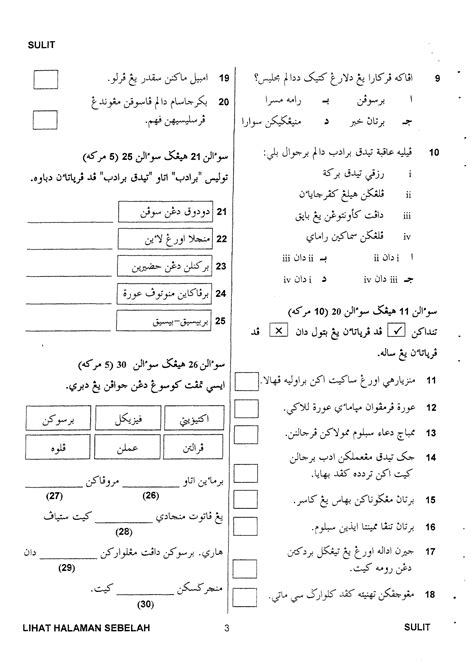 SULIT
9 اڤاكه ڤركارا يڠ دلارڠ كتيك ددالم مجليس؟
ا برسوڤن بـ رامه مسرا
جـ برتان خبر د منيڠڬيكن سوارا
10 ڤيليه عاقبة تيدق برادب دالم برجوال بلي:
i رزقي تيدق بركة
ii ڤلڠڬن هيلڠ كڤرچاياءن
iii داڤت كأونتوڠن يڠ بايق
iv ڤلڠڬن سماكين راماي
ا i دان ii بـ ii دان iii
جـ iii دان iv د i دان iv
سوءالن 11 هيڠڬ سوءالن 20 (10 مركه)
تنداكن ✓ ڤد ڤرڽاتاءن يڠ بتول دان ✕ ڤد
ڤرڽاتاءن يڠ ساله.
11 منزيارهي اورڠ ساكيت اكن براوليه ڤهالا.
12 عورة ڤرمڤوان مڽاماءي عورة للاكي.
13 ممباچ دعاء سبلوم ممولاكن ڤرجالنن.
14 جك تيدق مڠعملكن ادب برجالن
كيت اكن تردده كڤد بهايا.
15 برتان مڠݢوناكن بهاس يڠ كاسر.
16 برتان تنڤا ممينتا ايذين سبلوم.
17 جيرن اداله اورڠ يڠ تيڠڬل بردكتن
دڠن رومه كيت.
18 مڠوچڤكن تهنيئه كڤد كلوارݢ سي ماتي.
19 امبيل ماكنن سقدر يڠ ڤرلو.
20 بكرجاسام دالم ڤاسوقن مڠوندڠ
ڤرسليسيهن فهم.
سوءالن 21 هيڠڬ سوءالن 25 (5 مركه)
توليس "برادب" اتاو "تيدق برادب" ڤد ڤرڽاتاءن دباوه.
21 دودوق دڠن سوڤن
22 منچلا اورڠ لاءين
23 بركنلن دڠن حضيرين
24 برڤاكاين منوتوڤ عورة
25 بربيسيق-بيسيق
سوءالن 26 هيڠڬ سوءالن 30 (5 مركه)
ايسي تمڤت كوسوڠ دڠن جواڤن يڠ دبري.
اكتيۏيتي فيزيكل برسوكن
ڤرالتن عملن ڤلوه
برماءين اتاو ________ مروڤاكن ________
(26) (27)
يڠ ڤاتوت منجادي ________ كيت ستياڤ
(28)
هاري. برسوكن داڤت مڠلواركن ________ دان
(29)
منچرݢسكن ________ كيت.
(30)
LIHAT HALAMAN SEBELAH 3 SULIT